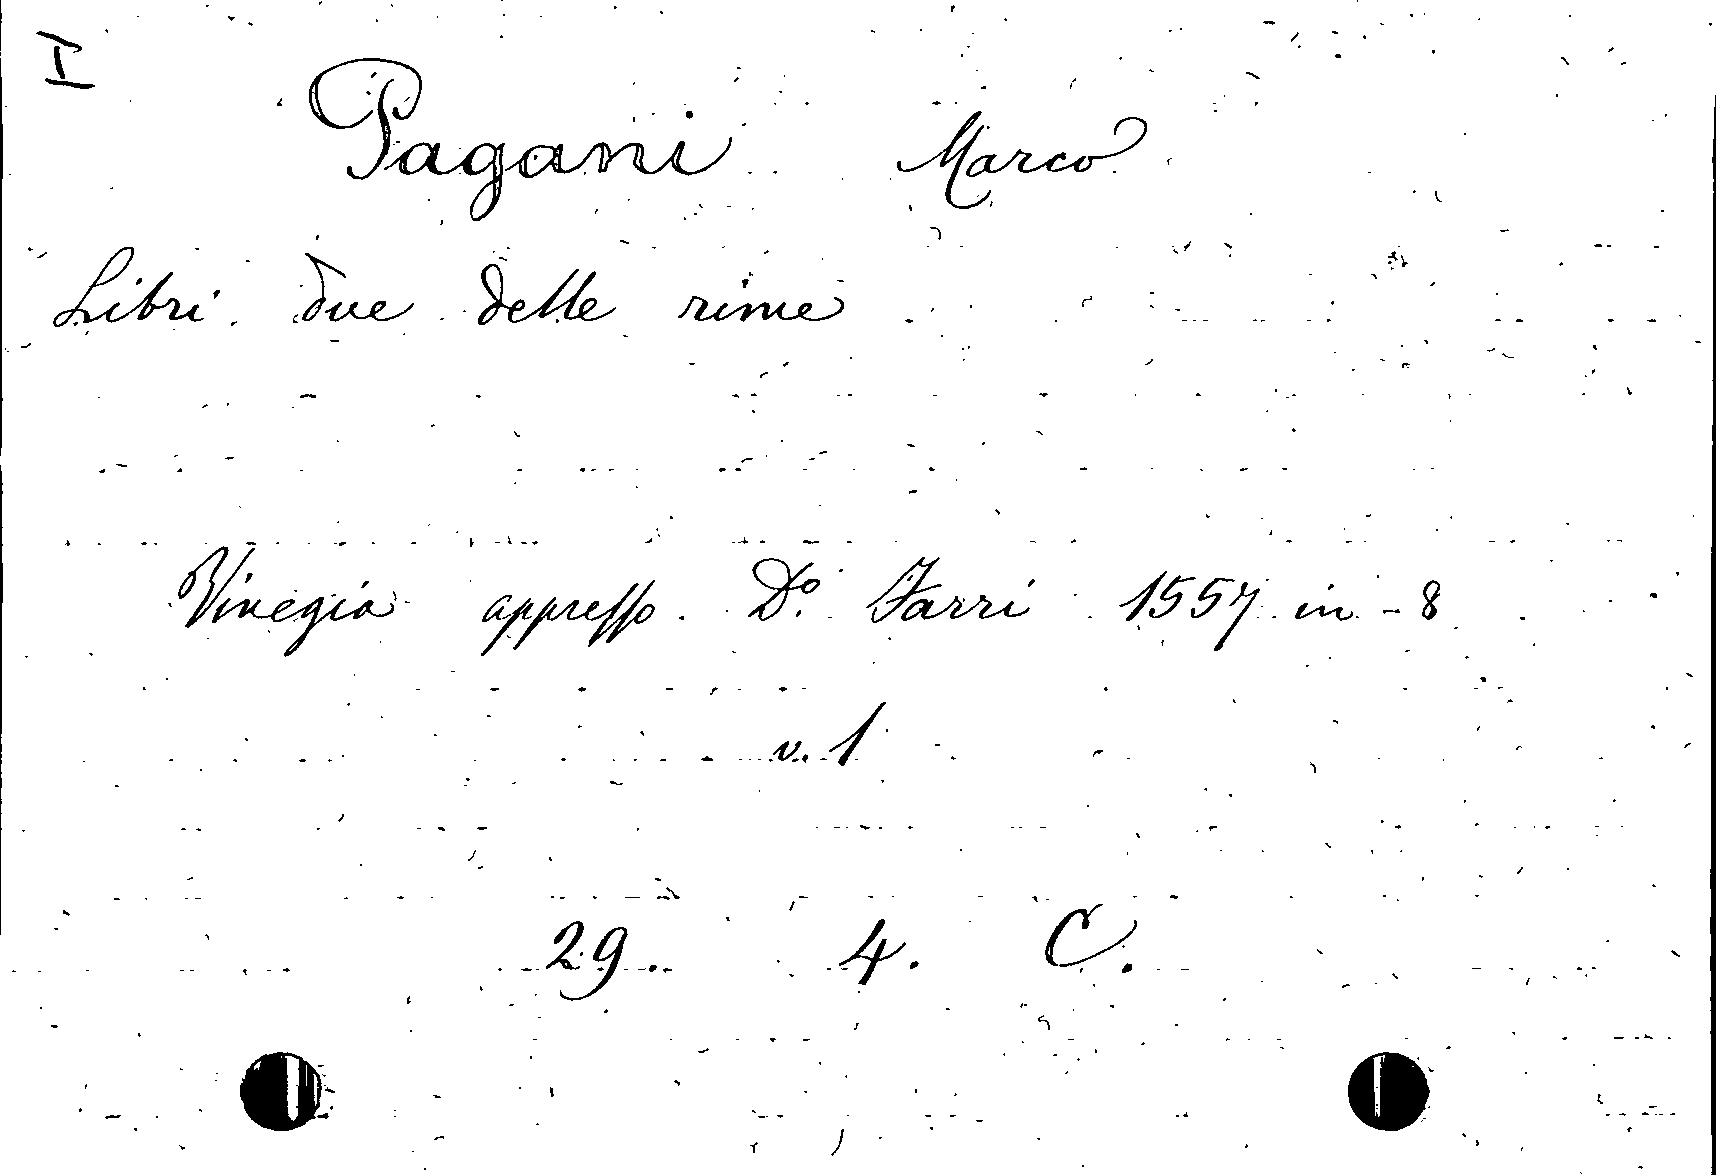 I
Pagani Marco
Libri due delle rime
Vinegia appresso D.º Farri 1557 in - 8
v. 1
29. 4. C.